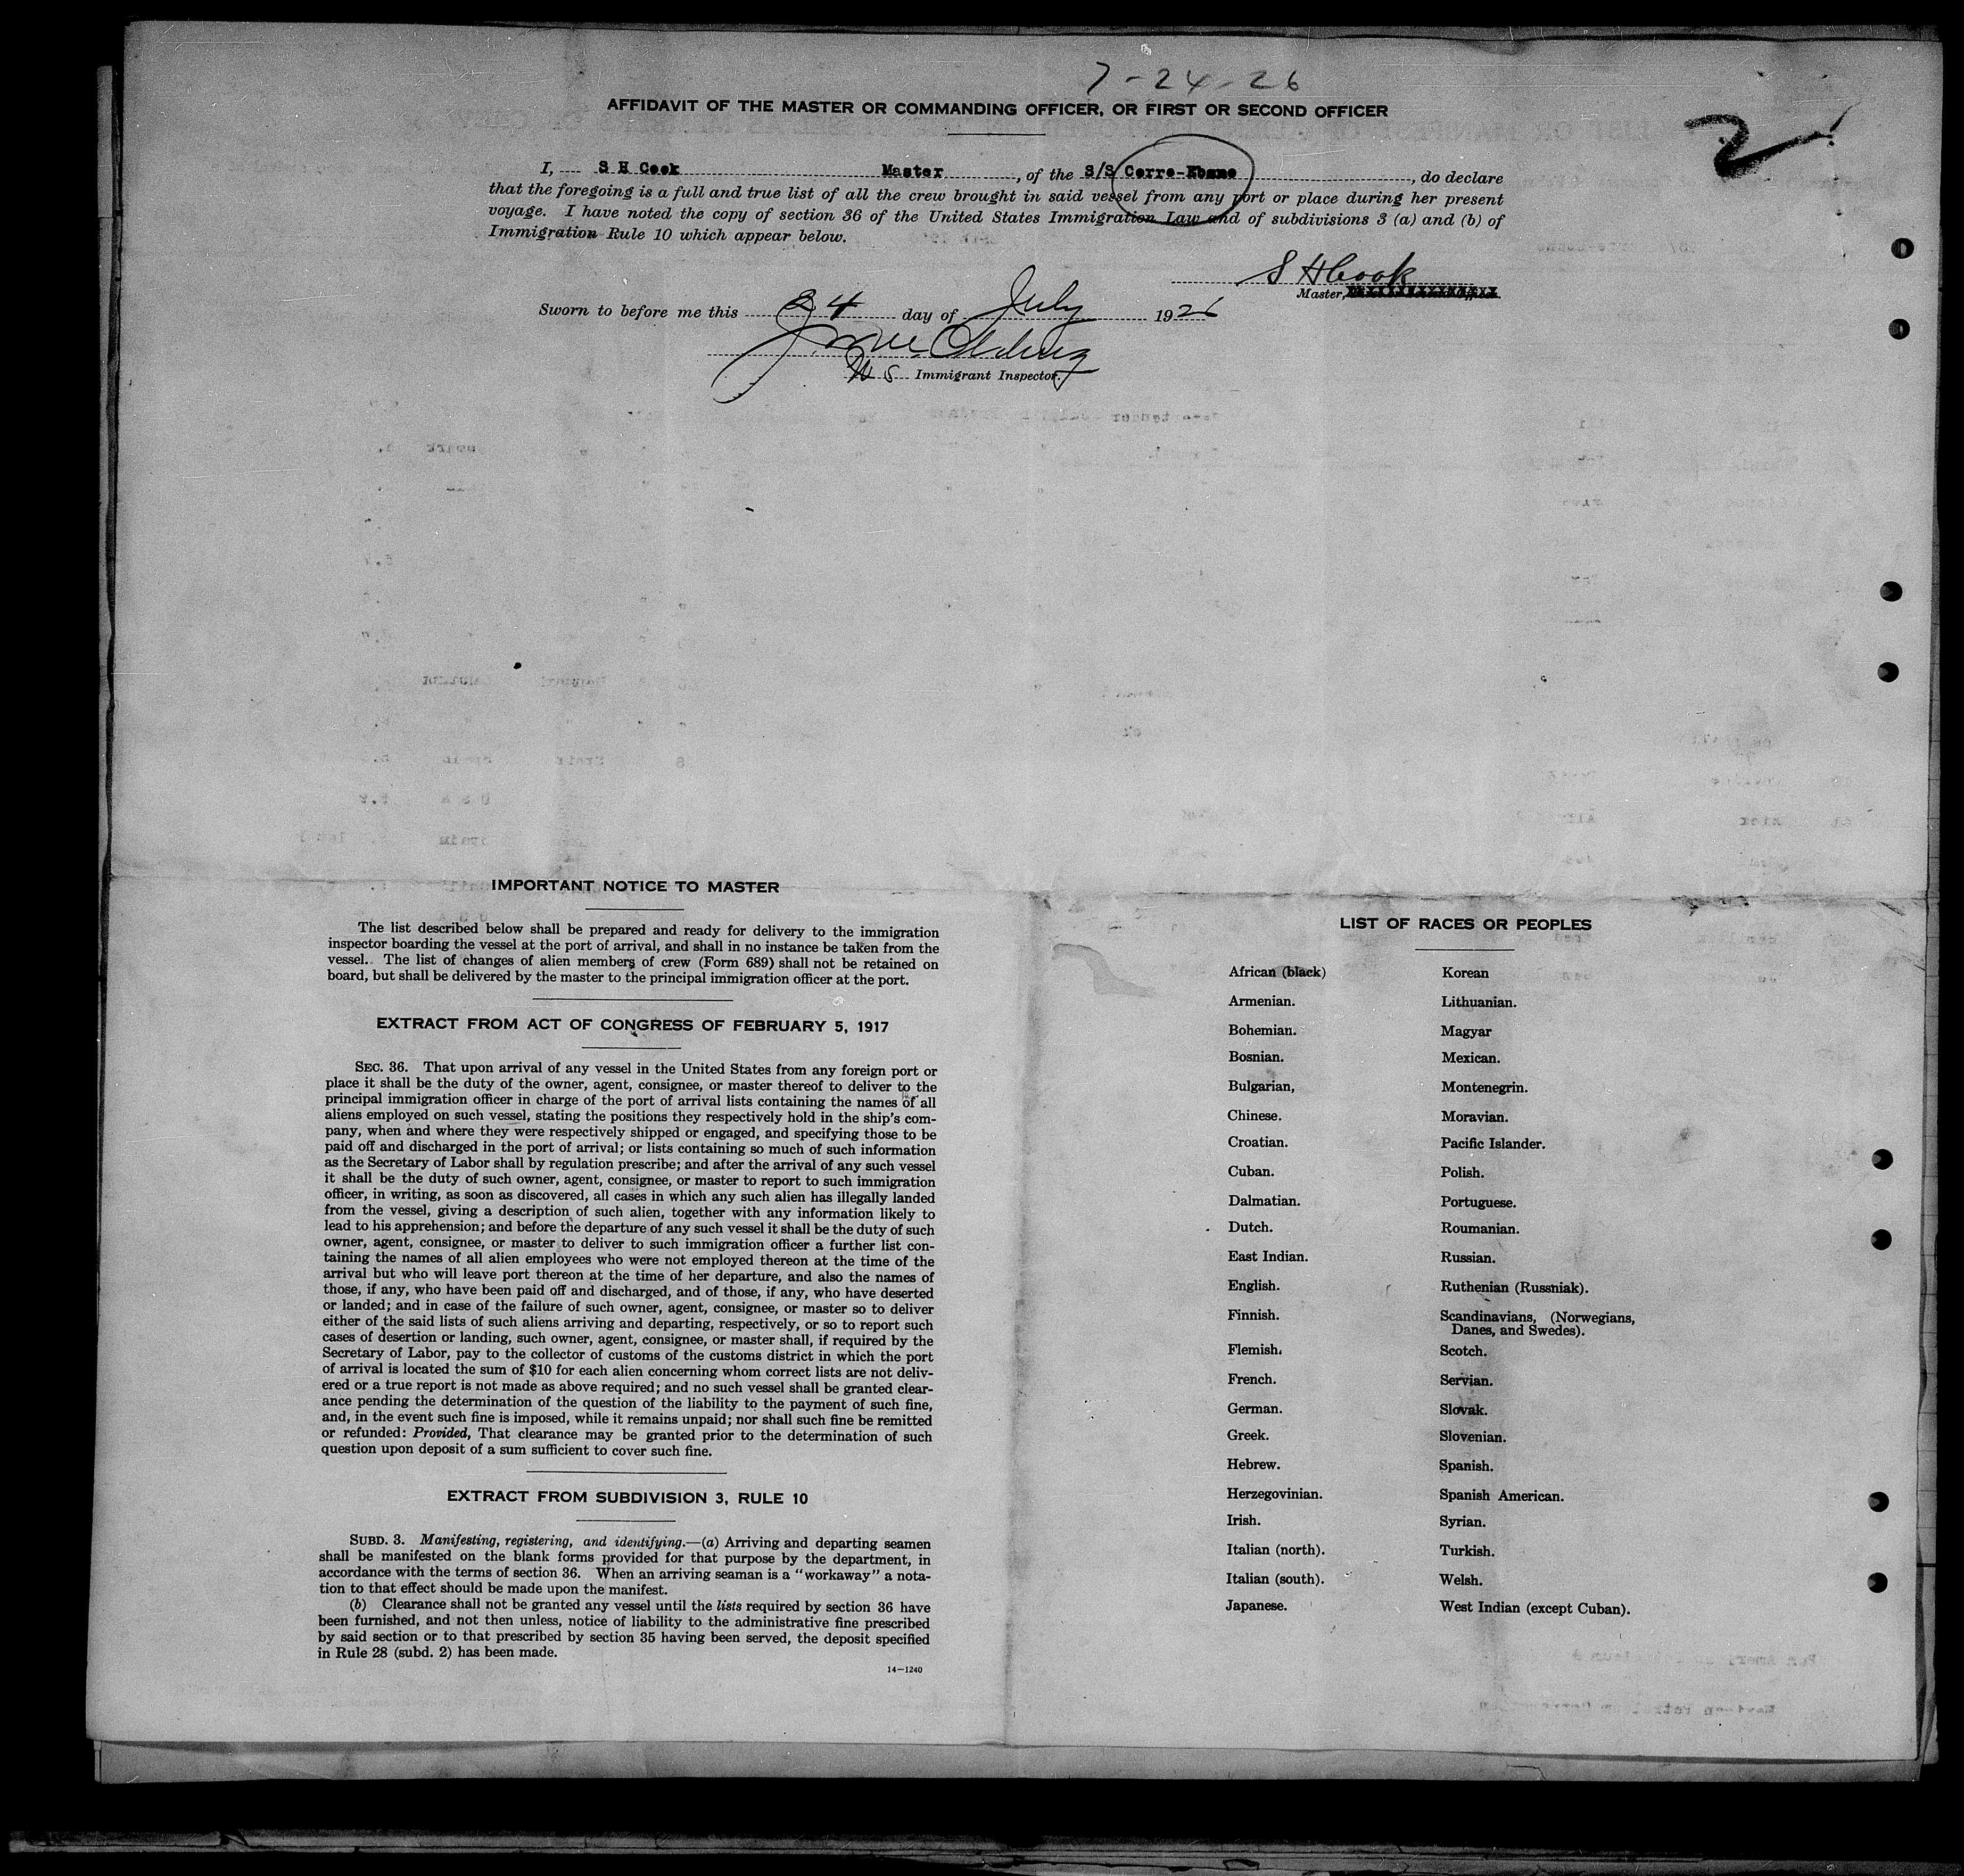 7-24-26
2
AFFIDAVIT OF THE MASTER OR COMMANDING OFFICER, OR FIRST OR SECOND OFFICER
I, S H Cook Master, of the S/S Cerro-Ebano, do declare
that the foregoing is a full and true list of all the crew brought in said vessel from any port or place during her present
voyage. I have noted the copy of section 36 of the United States Immigration Law and of subdivisions 3 (a) and (b) of
Immigration Rule 10 which appear below.
S H Cook
Master,
Sworn to before me this 24 day of July 1926
U S Immigrant Inspector.
IMPORTANT NOTICE TO MASTER
The list described below shall be prepared and ready for delivery to the immigration
inspector boarding the vessel at the port of arrival, and shall in no instance be taken from the
vessel. The list of changes of alien members of crew (Form 689) shall not be retained on
board, but shall be delivered by the master to the principal immigration officer at the port.
EXTRACT FROM ACT OF CONGRESS OF FEBRUARY 5, 1917
SEC. 36. That upon arrival of any vessel in the United States from any foreign port or
place it shall be the duty of the owner, agent, consignee, or master thereof to deliver to the
principal immigration officer in charge of the port of arrival lists containing the names of all
aliens employed on such vessel, stating the positions they respectively hold in the ship's com-
pany, when and where they were respectively shipped or engaged, and specifying those to be
paid off and discharged in the port of arrival; or lists containing so much of such information
as the Secretary of Labor shall by regulation prescribe; and after the arrival of any such vessel
it shall be the duty of such owner, agent, consignee, or master to report to such immigration
officer, in writing, as soon as discovered, all cases in which any such alien has illegally landed
from the vessel, giving a description of such alien, together with any information likely to
lead to his apprehension; and before the departure of any such vessel it shall be the duty of such
owner, agent, consignee, or master to deliver to such immigration officer a further list con-
taining the names of all alien employees who were not employed thereon at the time of the
arrival but who will leave port thereon at the time of her departure, and also the names of
those, if any, who have been paid off and discharged, and of those, if any, who have deserted
or landed; and in case of the failure of such owner, agent, consignee, or master so to deliver
either of the said lists of such aliens arriving and departing, respectively, or so to report such
cases of desertion or landing, such owner, agent, consignee, or master shall, if required by the
Secretary of Labor, pay to the collector of customs of the customs district in which the port
of arrival is located the sum of $10 for each alien concerning whom correct lists are not deliv-
ered or a true report is not made as above required; and no such vessel shall be granted clear-
ance pending the determination of the question of the liability to the payment of such fine,
and, in the event such fine is imposed, while it remains unpaid; nor shall such fine be remitted
or refunded: Provided, That clearance may be granted prior to the determination of such
question upon deposit of a sum sufficient to cover such fine.
EXTRACT FROM SUBDIVISION 3, RULE 10
SUBD. 3. Manifesting, registering, and identifying.—(a) Arriving and departing seamen
shall be manifested on the blank forms provided for that purpose by the department, in
accordance with the terms of section 36. When an arriving seaman is a "workaway" a nota-
tion to that effect should be made upon the manifest.
(b) Clearance shall not be granted any vessel until the lists required by section 36 have
been furnished, and not then unless, notice of liability to the administrative fine prescribed
by said section or to that prescribed by section 35 having been served, the deposit specified
in Rule 28 (subd. 2) has been made.
14—1240
LIST OF RACES OR PEOPLES
African (black)
Armenian.
Bohemian.
Bosnian.
Bulgarian,
Chinese.
Croatian.
Cuban.
Dalmatian.
Dutch.
East Indian.
English.
Finnish.
Flemish.
French.
German.
Greek.
Hebrew.
Herzegovinian.
Irish.
Italian (north).
Italian (south).
Japanese.
Korean
Lithuanian.
Magyar
Mexican.
Montenegrin.
Moravian.
Pacific Islander.
Polish.
Portuguese.
Roumanian.
Russian.
Ruthenian (Russniak).
Scandinavians, (Norwegians,
Danes, and Swedes).
Scotch.
Servian.
Slovak.
Slovenian.
Spanish.
Spanish American.
Syrian.
Turkish.
Welsh.
West Indian (except Cuban).